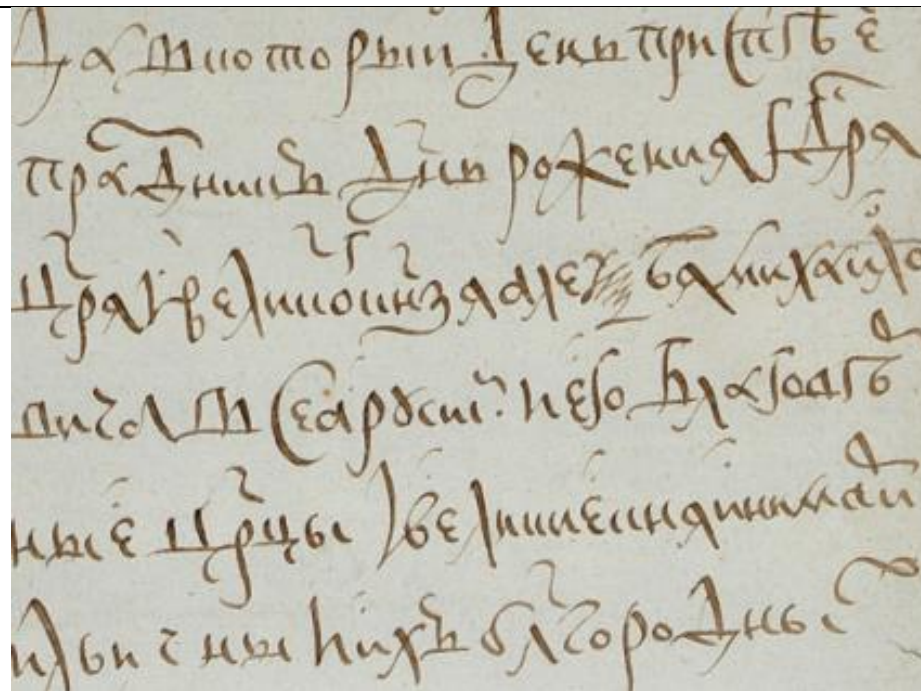 Да в которыи день приспѣе
празникъ днь рожения гдря
цря и великого кнзя алеѯѣя михаило
вича всеа русии и его благовѣр
ные црцы и великие княгини мари
ильичны и ихъ блгородных